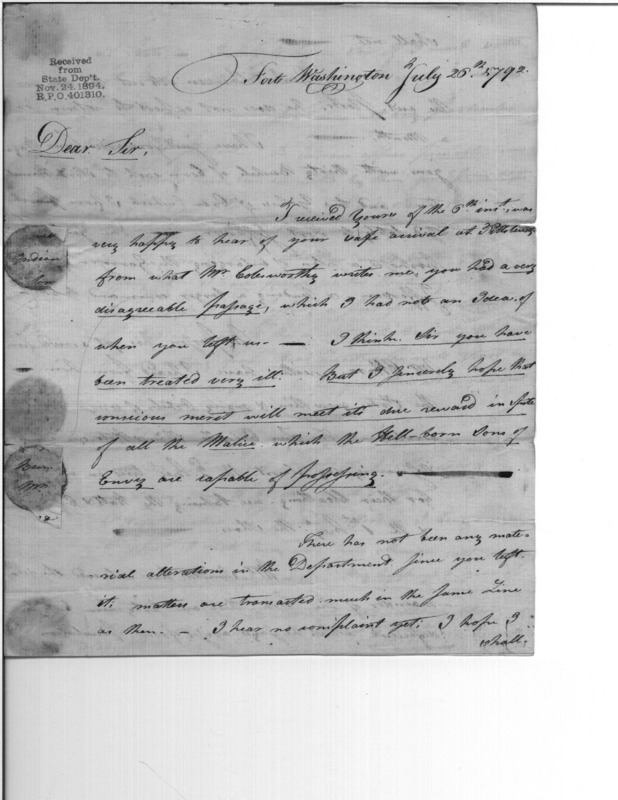 Received
from
State Dep't.
Nov. 24. 1894.
R.P.O. 401310.
Fort Washington July 26th 1792.
Dear Sir,
I received yours of the 6th inst, was
very happy to hear of your safe arrival at
from what Mr Colesworthy writes me, you had a very
disagreeable passage, which I had not an Idea of
when you left us. — I think Sir you have
been treated very ill. But I sincerely hope that
conscious merit will meet its due reward in spite
of all the Malice which the Hell-born Sons of
Envy are capable of possessing.
There has not been any mate-
rial alterations in the Department since you left
it; matters are transacted much in the same Line
as then. — I hear no complaint yet; I hope I
shall
Indian